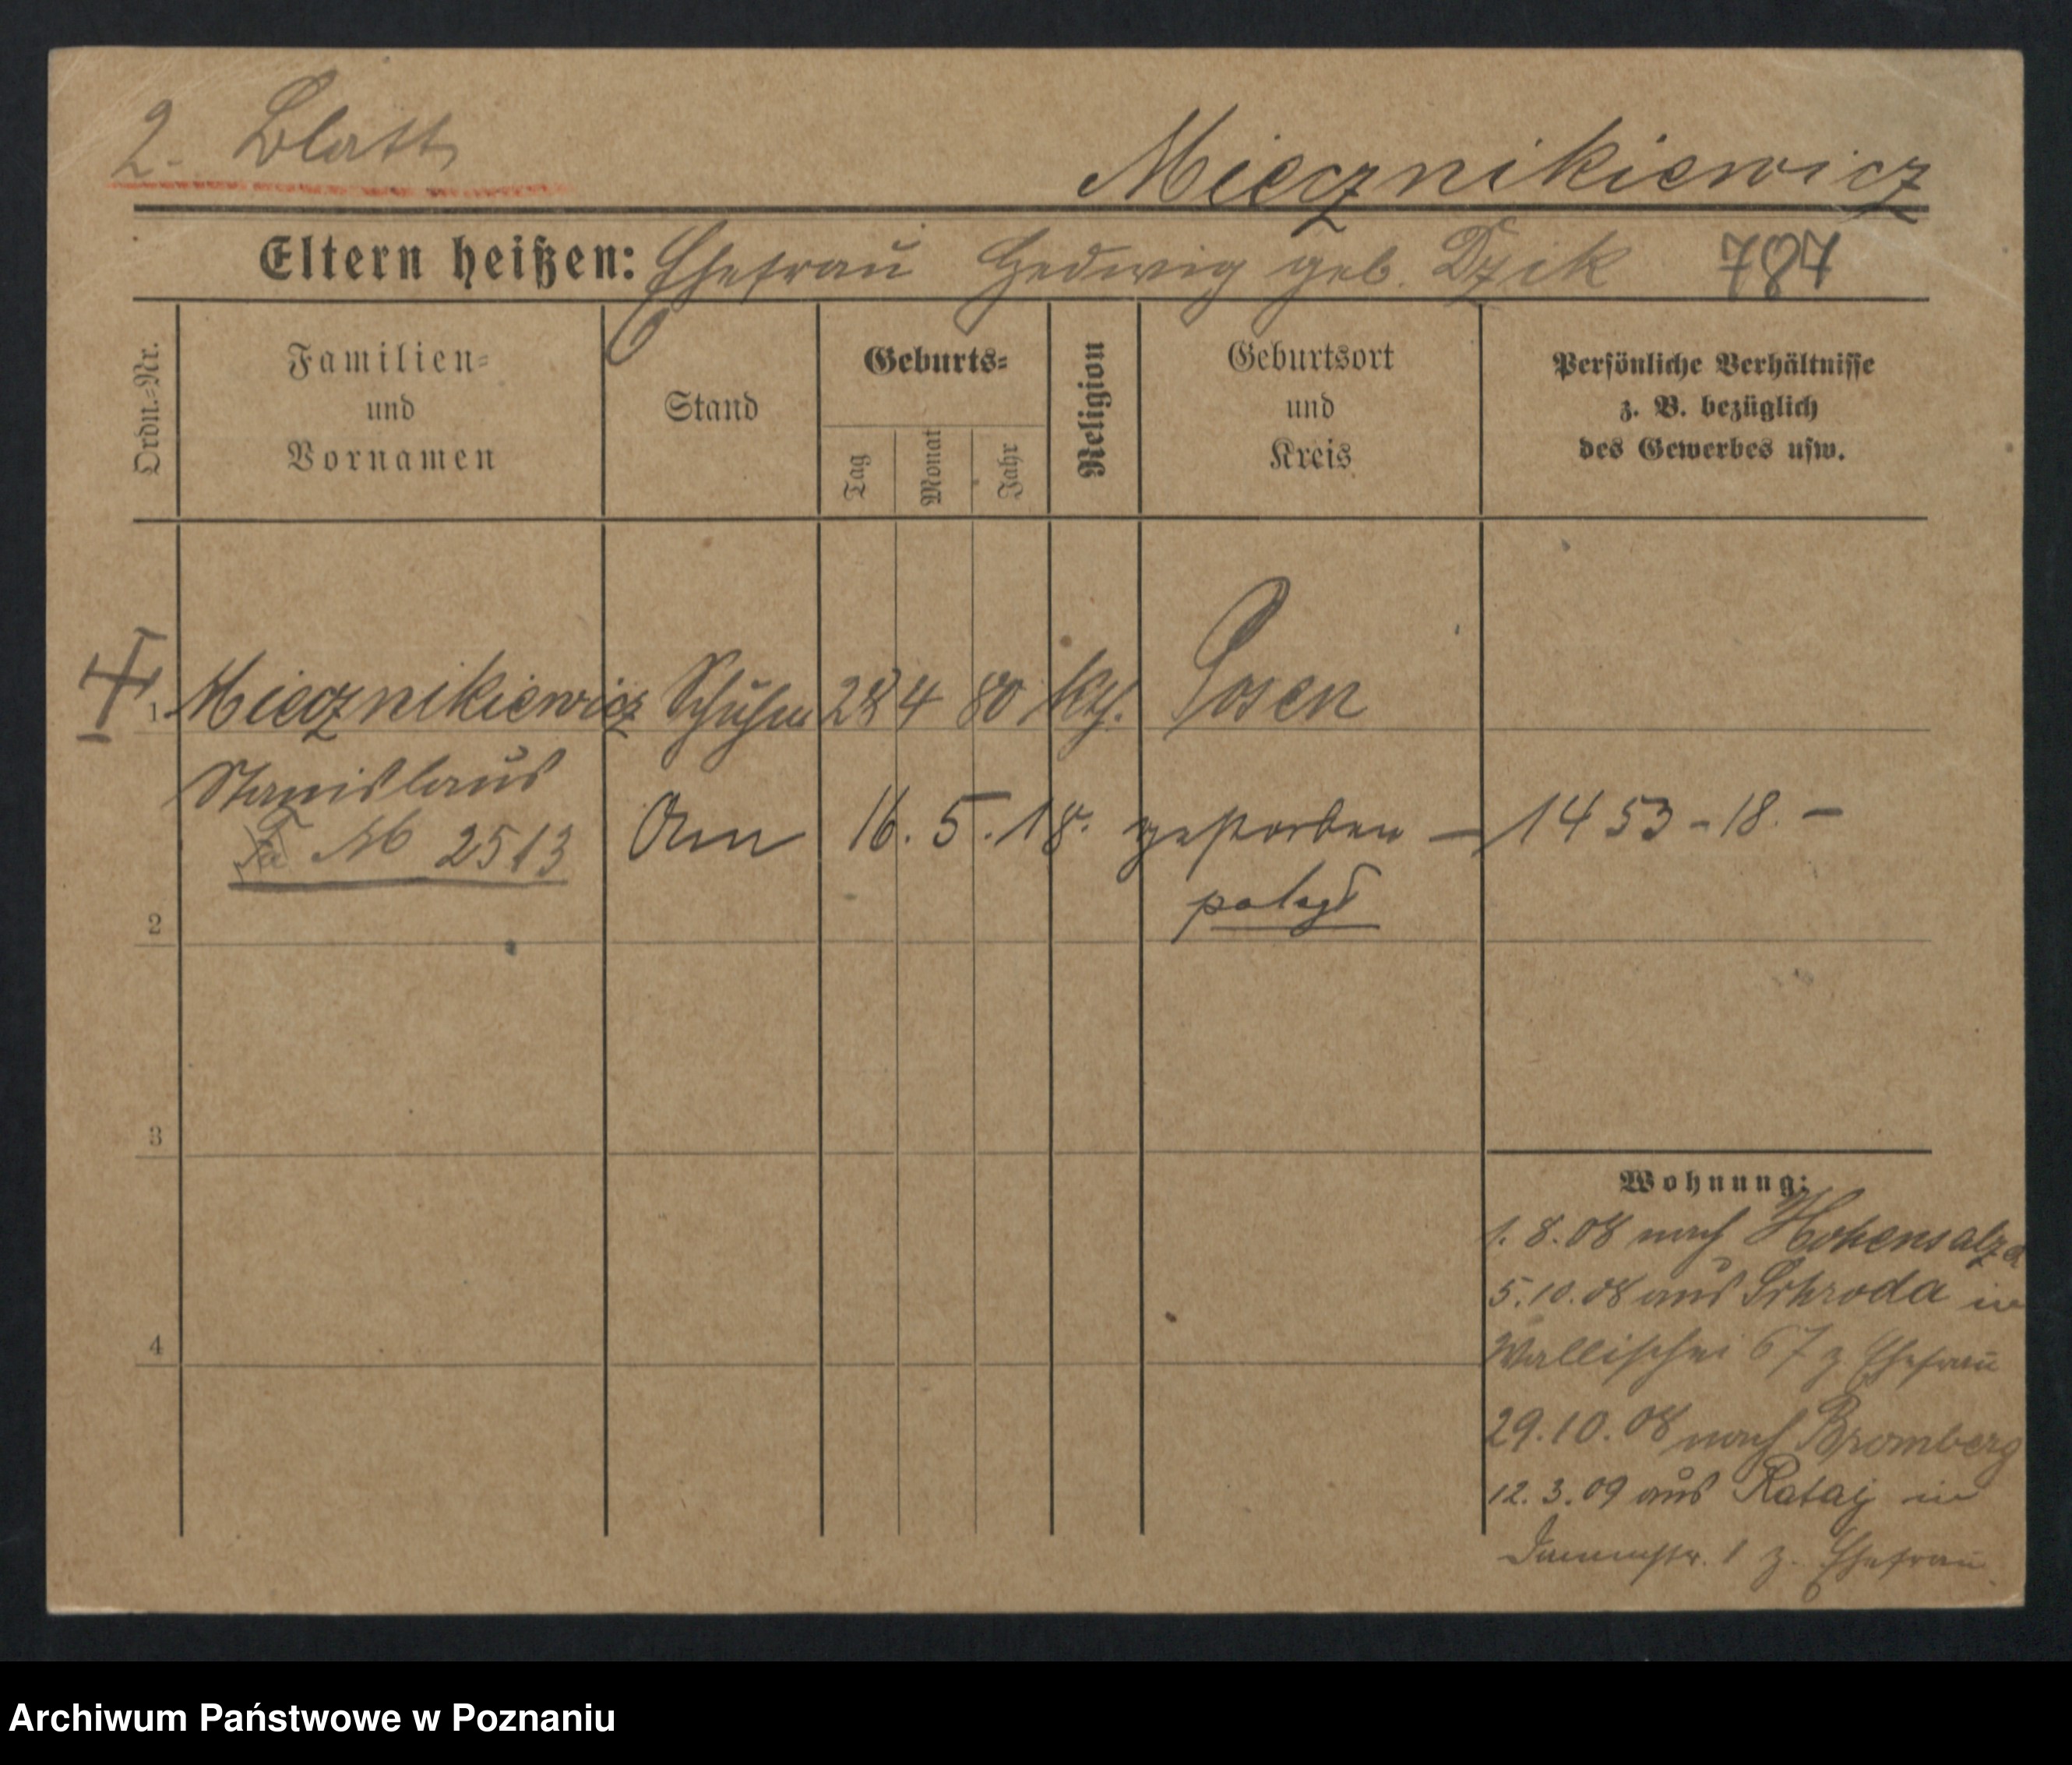 2. Blatt
Miecznikiewicz
Eltern heißen: Ehefrau Hedwig geb. Dzik 787
Ordn.-Nr.
Familien- und Vornamen
Stand
Geburts-
Tag
Monat
Jahr
Religion
Geburtsort und Kreis
Persönliche Verhältnisse z. B. bezüglich des Gewerbes usw.
1 Miecznikiewicz Schuhm 28 4 80 kth. Posen
Stanislaus
Am 16. 5. 18. gestorben – 1453 - 18. –
M 2513
2
3
Wohnung:
1. 8. 08 nach Hohensalza
5. 10. 08 aus Schroda in
4
Wallischei 67 z Ehefrau
29. 10. 08 nach Bromberg
12. 3. 09 aus Rataj in
1 z. Ehefrau
Archiwum Państwowe w Poznaniu